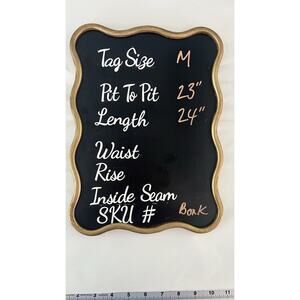 Tag Size M
Pit To Pit 23"
Length 24"
Waist
Rise
Inside Seam
SKU # Bonk
2 3 4 5 6 7 8 9 10 11